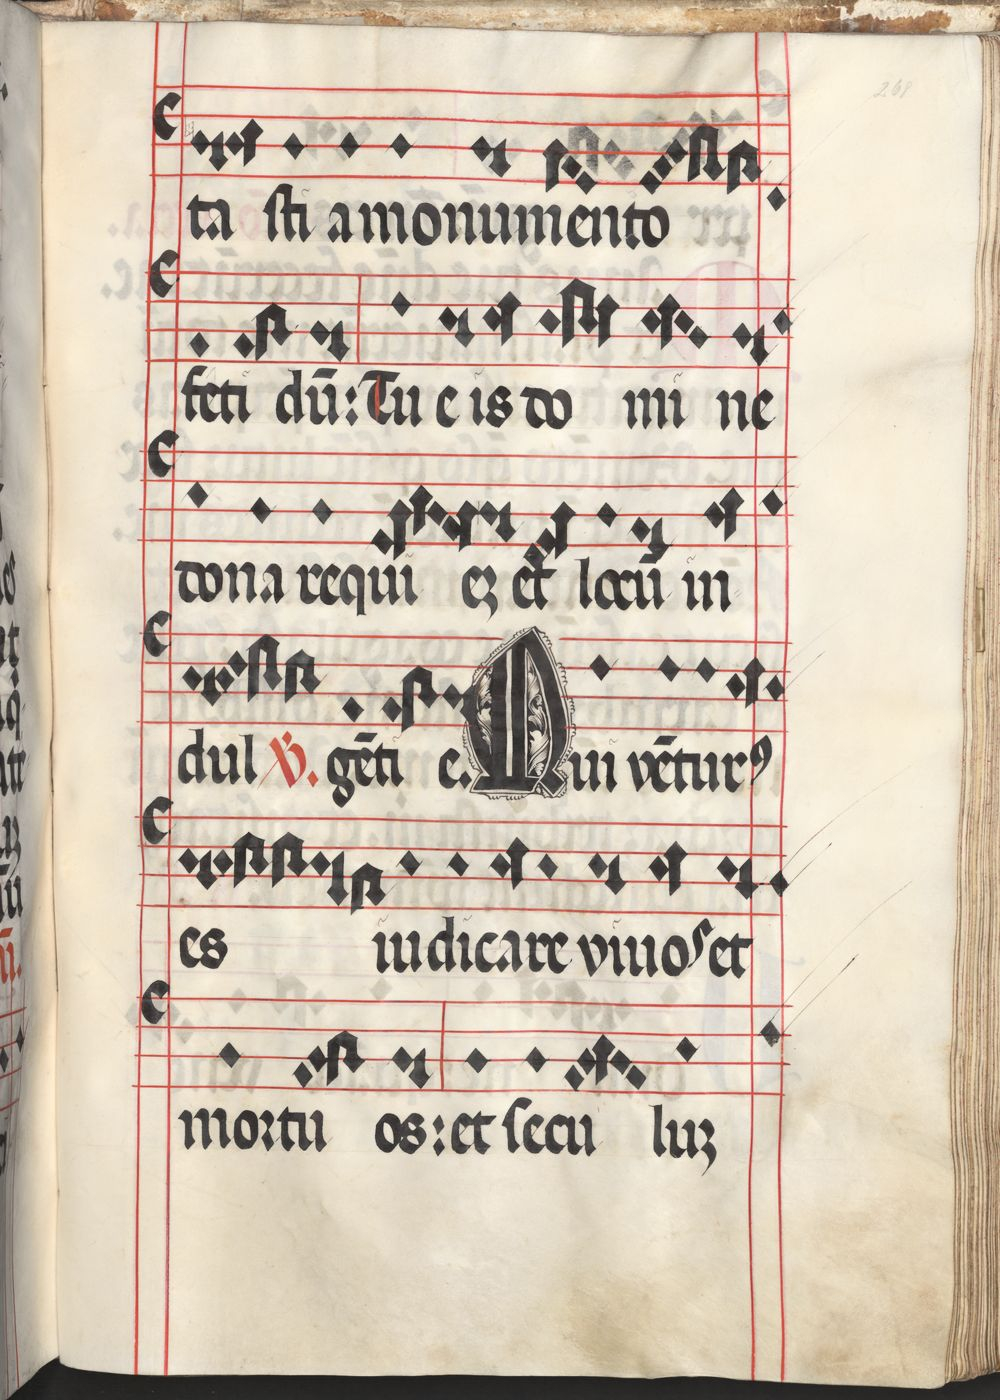 268
ta sti a monumento
feti dū: Tu e is do mi ne
dona requi eȝ et locū in
dul ℣. gēti e. Qui vētur⁹
es iudicare viuos et
mortu os: et secu luȝ